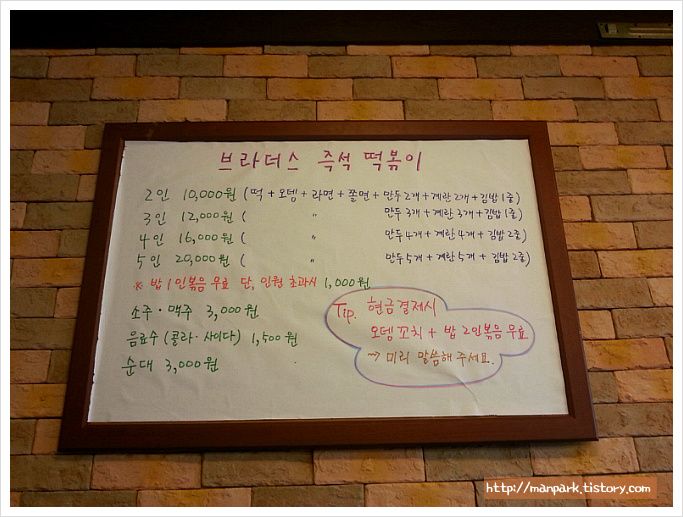 브라더스 즉석 떡볶이
2인 10,000원 (떡 + 오뎅 + 라면 + 쫄면 + 만두 2개 + 계란 2개 + 김밥 1줄)
3인 12,000원 ( " 만두 3개 + 계란 3개 + 김밥 1줄)
4인 16,000원 ( " 만두 4개 + 계란 4개 + 김밥 2줄)
5인 20,000원 ( " 만두 5개 + 계란 5개 + 김밥 2줄)
※ 밥 1인볶음 무료 단, 인원 초과시 1,000원
소주·맥주 3,000원
음료수 (콜라·사이다) 1,500원
순대 3,000원
Tip. 현금결제시
오뎅꼬치 + 밥 2인볶음 무료
→ 미리 말씀해 주세요.
http://manpark.tistory.com